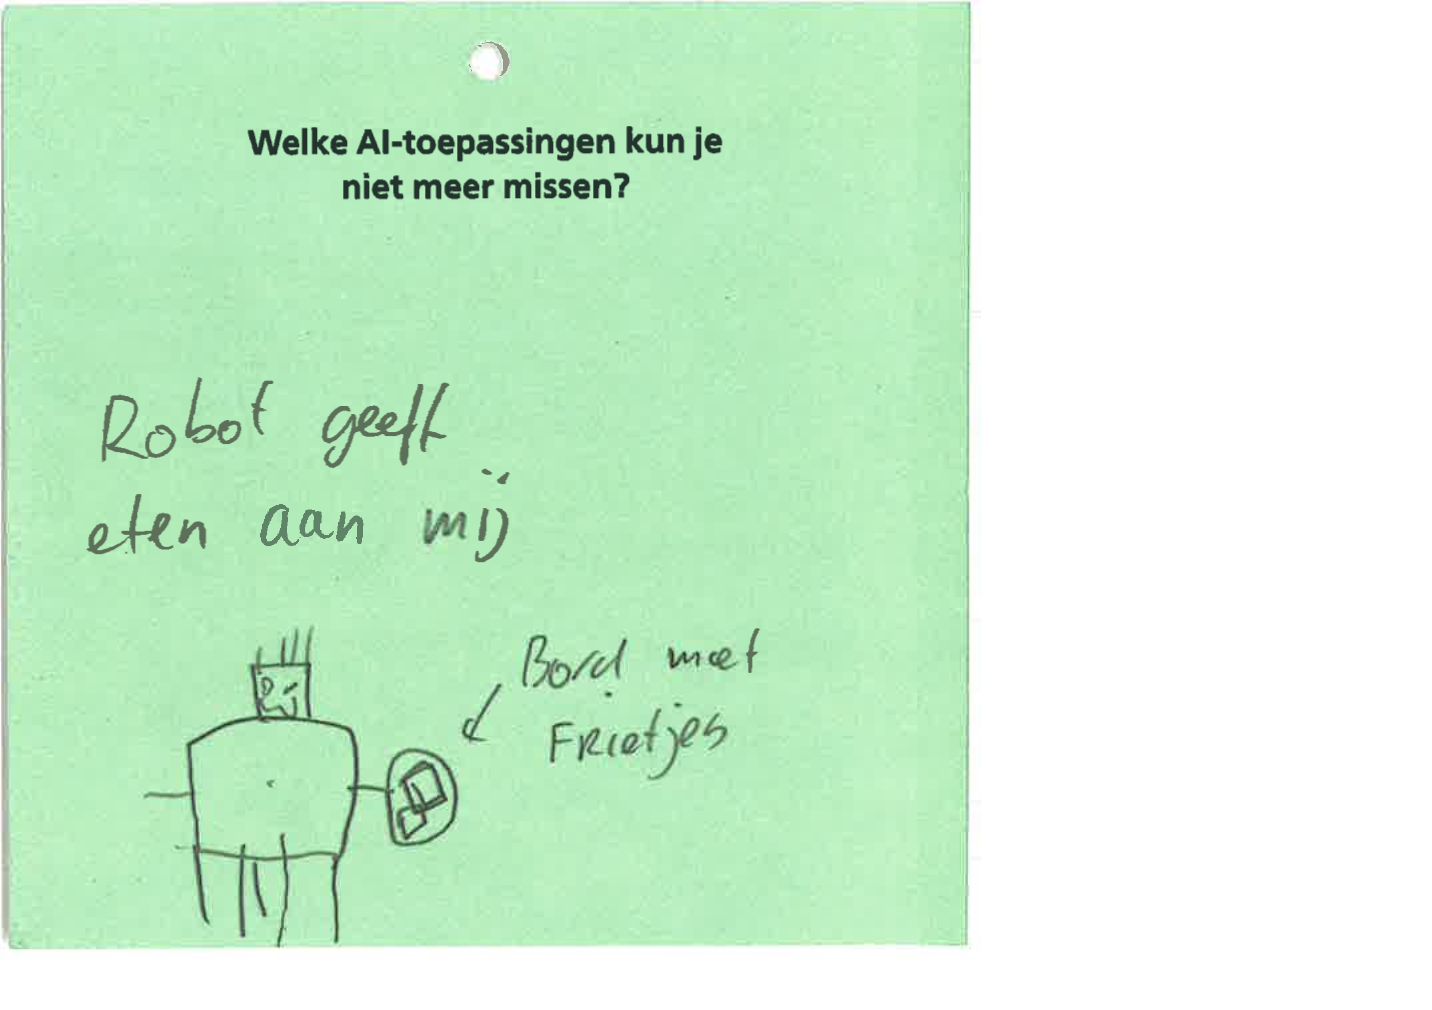 Welke AI-toepassingen kun je
niet meer missen?
Robot geeft
eten aan mij
Bord met
Frietjes